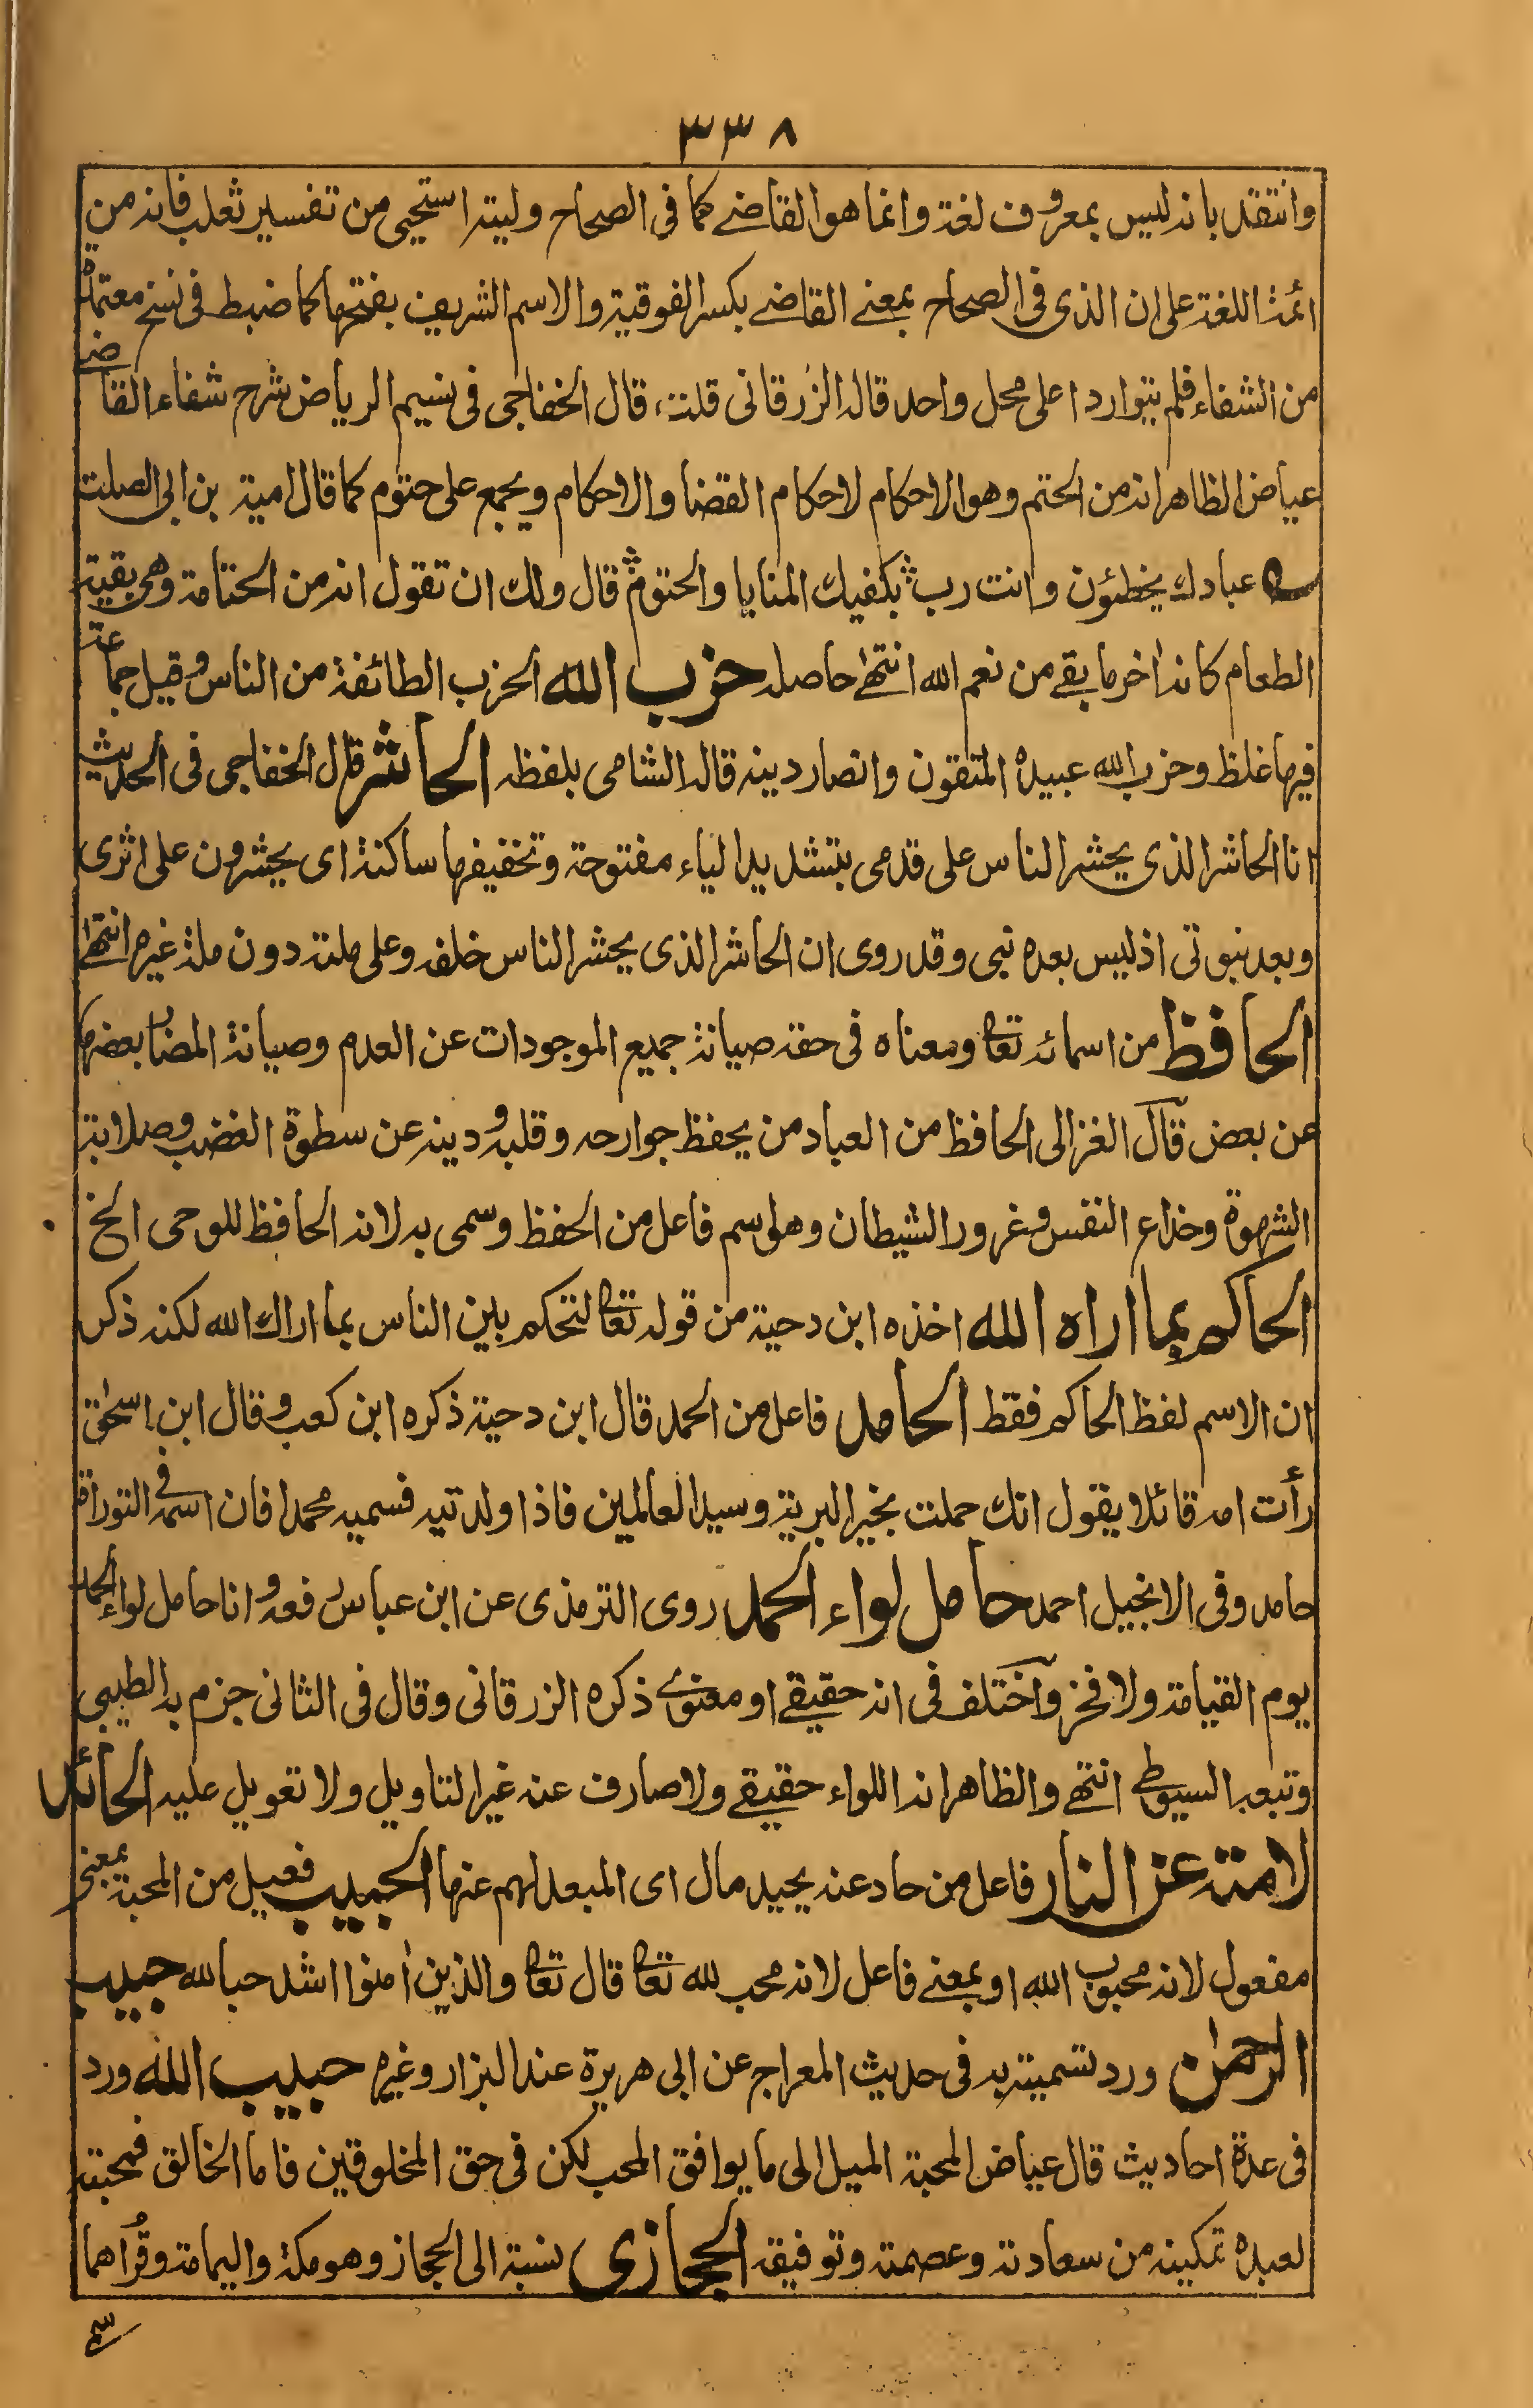 ٣٣٨
وانتقد بانه ليس بمعروف لغة وانما هو القاضے كما فى الصحاح وليته استحيى من تفسير ثعلب فانه من
ائمة اللغة على ان الذى فى الصحاح بمعنے القاضے بكسر الفوقية والاسم الشريف بفتحها كما ضبط فى نسخ معتمدة
من الشفاء فلم يتواردا على محل واحد قاله الزرقانى قلت، قال الخفاجى فى نسيم الرياض شرح شفاء القاضے
عياض الظاهر انه من الحتم وهو الاحكام لاحكام القضا والاحكام ويجمع على حتوم كما قال امية بن ابى الصلت
ے عبادك يخطئون وانت رب ؞ بكفيك المنايا والحتوم ؞ قال ولك ان تقول انه من الحتامة وهى بقية
الطعام كانه اٰخر ما بقے من نعم الله انتهٰے حاصله حزب الله الحزب الطائفة من الناس وقيل جماعة
فيها غلظ وحزب الله عبيده المتقون وانصار دينه قاله الشامى بلفظه الحاشر قال الخفاجى فى الحديث
انا الحاشر الذى يحشر الناس على قدمى بتشديد الياء مفتوحة وتخفيفها ساكنة اى يحشرون على اثرى
وبعد نبوتى اذ ليس بعده نبى وقد روى ان الحاشر الذى يحشر الناس خلفه وعلى ملته دون ملة غيره انتهٰے
الحافظ من اسمائه تعا ومعناه فى حقه صيانة جميع الموجودات عن العدم وصيانة المضاب بعضها
عن بعض قال الغزالى الحافظ من العباد من يحفظ جوارحه وقلبه ودينه عن سطوة الغضب وصلابة
الشهوة وخداع النفس وغرور الشيطان وهو اسم فاعل من الحفظ وسمى به لانه الحافظ للوحى الخ
الحاكم بما اراه الله اخذه ابن دحية من قوله تعا لتحكم بين الناس بما اراك الله لكنه ذكر
ان الاسم لفظ الحاكم فقط الحامد فاعل من الحمد قال ابن دحية ذكره ابن كعب وقال ابن اسحٰق
رأت امه قائلا يقول انك حملت بخير البرية وسيد العالمين فاذا ولدتيه فسميه محمدا فان اسمه فى التوراة
حامد وفى الانجيل احمد حامل لواء الحمد روى الترمذى عن ابن عباس رفعه وانا حامل لواء الحمد
يوم القيامة ولا فخر واختلف فى انه حقيقے او معنوے ذكره الزرقانى وقال فى الثانى جزم به الطيبى
وتبعه السيوطى انتهے والظاهر انه اللواء حقيقے ولا صارف عنه غير التاويل ولا تعويل عليه الحائد
لامته عن النار فاعل من حاد عنه يحيد مال اى المبعد لهم عنها الحبيب فعيل من المحبة بمعنى
مفعول لانه محبوب الله او بمعنے فاعل لانه محب لله تعا قال تعا والذين اٰمنوا اشد حبا لله حبيب
الرحمٰن ورد تسميته به فى حديث المعراج عن ابى هريرة عند البزار وغيره حبيب الله ورد
فى عدة احاديث قال عياض المحبة الميل الى ما يوافق المحب لكن فى حق المخلوقين فاما الخالق فمحبته
لعبده تمكينه من سعادته وعصمته وتوفيقه الحجازى نسبة الى الحجاز وهو مكة واليمامة وقُراهما